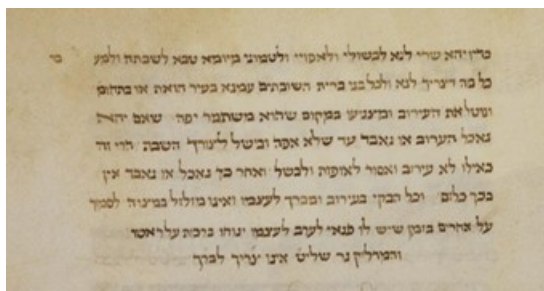 בדין יהא שרי לנא לבשולי ולאפויי ולטמוני מיומא טבא לשבתה ולמע
כל מה דצריך לנא ולכל בני ברית השובתים עמנא בעיר הזאת או בתחום
ונוטל את העירוב ומצניעו במקום שהוא משתמר יפה שאם יהא
נאכל הערוב או נאבד עד שלא אפה ובישל לצורך השבת הרי זה
כאילו לא עירב ואסור לאפות ולבשל ואחר כך נאכל או נאבד אין
בכך כלום וכל הבקי בעירוב ומברך לעצמו ואינו מזלזל במצוה לסמוך
על אחרים בזמן שיש לו פנאי לערב לעצמו ינוחו ברכות על ראשו
והמדליק נר שליט אינו צריך לברך